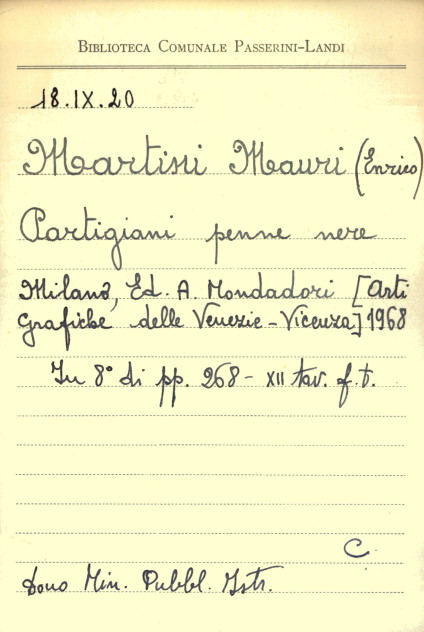 BIBLIOTECA COMUNALE PASSERINI-LANDI
18.IX.20
Martini Mauri (Enrico)
Partigiani penne nere
Milano, Ed. A. Mondadori [Arti
Grafiche delle Venezie - Vicenza] 1968
In 8° di pp. 268 - XII tav. f.t.
C.
Dono Min. Pubbl. Istr.